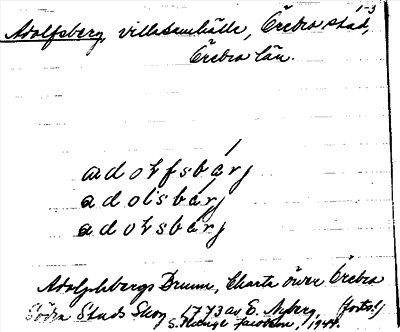 1-3
Adolfsberg, villasamhälle, Örebro stad,
Örebro län.
adolfsbárj
adolsbárj
adolsbárj
Adolphsbergs Brunn, Charta öwer Örebro
Södra Stads Skog 1773 av E. Nyberg. (forts.)
S. Hedvige Jacobson, 1944.